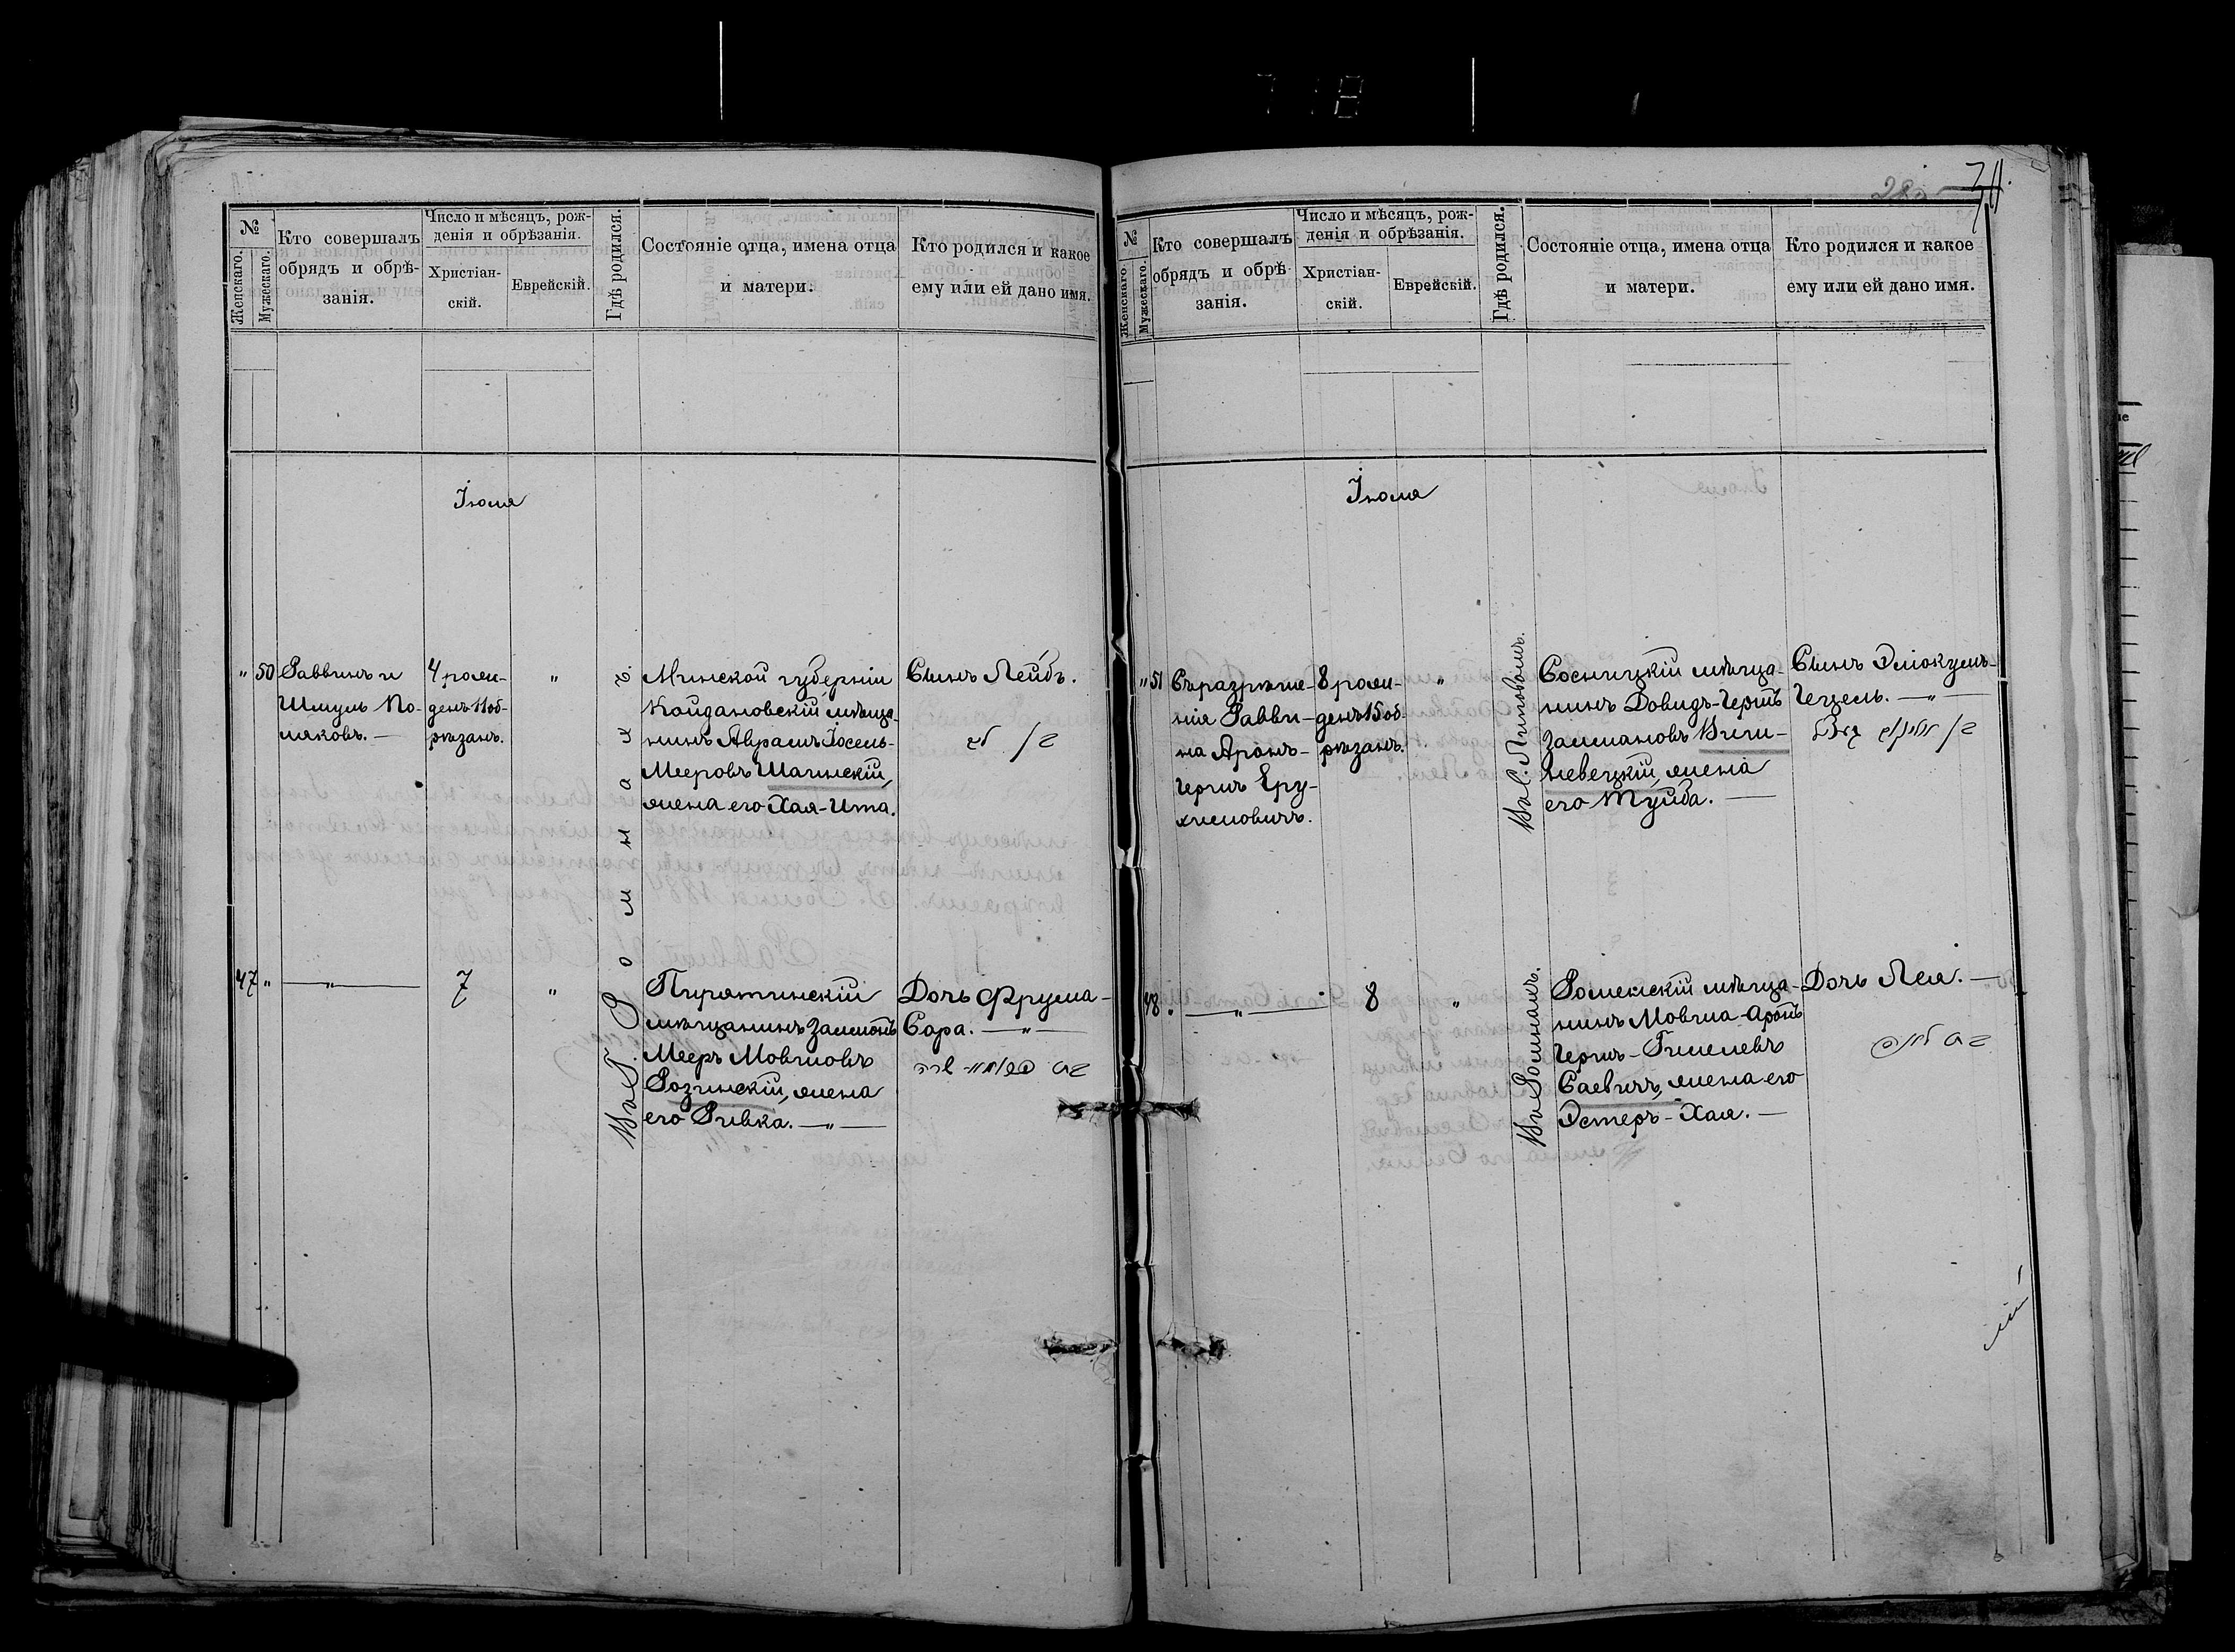 718
280 711.
№
Женскаго.
Мужескаго.
Кто совершалъ
обрядъ и обрѣ-
занія.
Число и мѣсяцъ, рож-
денія и обрѣзанія.
Христіан-
скій.
Еврейскій.
Гдѣ родился.
Состояніе отца, имена отца
и матери.
Кто родился и какое
ему или ей дано имя.
Іюля
" 50
Раввинъ и
Шмуль По-
ляковъ. —
4 рожд-
денъ 11 об-
рѣзанъ.
"
Въ Г. Ромнахъ.
Минской губерніи
Койдановскій мѣща-
нинъ Абрамъ Іосель-
Мееровъ Шагинскій,
жена его Хая-Ита.
Сынъ Лейбъ.
47 "
— " —
7
"
Пирятинскій
мѣщанинъ Залмонъ
Мееръ Мовшовъ
Розинскій, жена
его Ривка. — " —
Дочь Фрума-
Сара. — " —
בת פרומא שרה
№
Женскаго.
Мужескаго.
Кто совершалъ
обрядъ и обрѣ-
занія.
Число и мѣсяцъ, рож-
денія и обрѣзанія.
Христіан-
скій.
Еврейскій.
Гдѣ родился.
Состояніе отца, имена отца
и матери.
Кто родился и какое
ему или ей дано имя.
Іюля
" 51
Съ разрѣше-
нія Равви-
на Аронъ-
Гершъ Еру-
химовичъ.
8 рожд-
денъ 15 об-
рѣзанъ.
"
Въ с. Липовомъ.
Сосницкій мѣща-
нинъ Довидъ-Гершъ
Залмановъ Виш-
невецкій, жена
его Тауба. —
Сынъ Эліокумъ-
Гецель. — " —
48 "
— " —
8
"
Въ Ромнахъ.
Роменскій мѣща-
нинъ Мовша-Аронъ
Гершъ-Гилелевъ
Саевичъ, жена его
Эстеръ-Хая. —
Дочь Лея. —